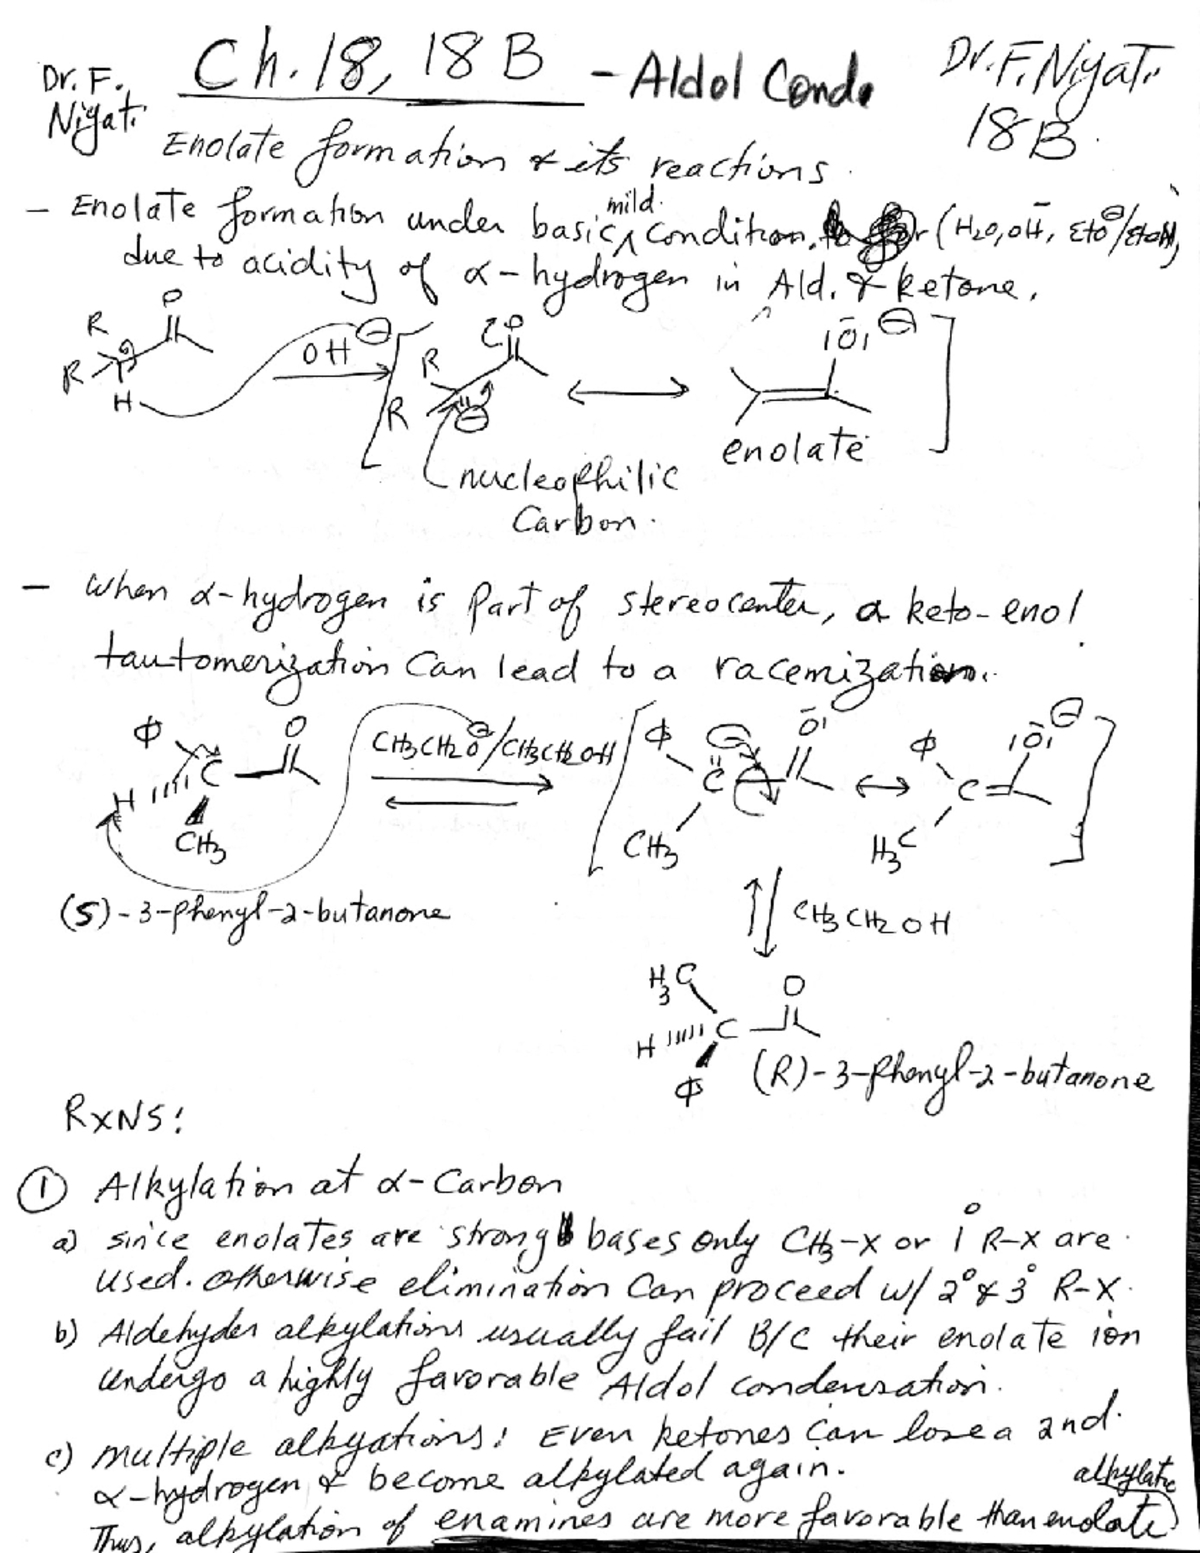 Ch. 18, 18 B - Aldol Cond.
Dr. F. Niyati
Dr. F. Niyati
18 B.
Enolate formation & its reactions.
- Enolate formation under basic mild condition, for (H2O, OH⁻, EtO⊖/EtOH,
due to acidity of α-hydrogen in Ald. & ketone.
R O
R
H
OH⊖
R O
R ⊖
|O| ⊖
nucleophilic
Carbon.
enolate
- When α-hydrogen is part of stereocenter, a keto-enol
tautomerization can lead to a racemization.
Φ O
H C
CH3
CH3CH2O⊖/CH3CH2OH
Φ ⊖ O
C
CH3
Φ |O| ⊖
C
H3C
(S)-3-phenyl-2-butanone
CH3CH2OH
H3C O
H C
Φ
(R)-3-phenyl-2-butanone
RXNS:
① Alkylation at α-Carbon
a) since enolates are strong bases only CH3-X or 1° R-X are
used. otherwise elimination can proceed w/ 2° & 3° R-X.
b) Aldehydes alkylations usually fail B/C their enolate ion
undergo a highly favorable Aldol condensation.
c) multiple alkyations: Even ketones can lose a 2nd.
α-hydrogen & become alkylated again.
Thus, alkylation of enamines are more favorable than enolate